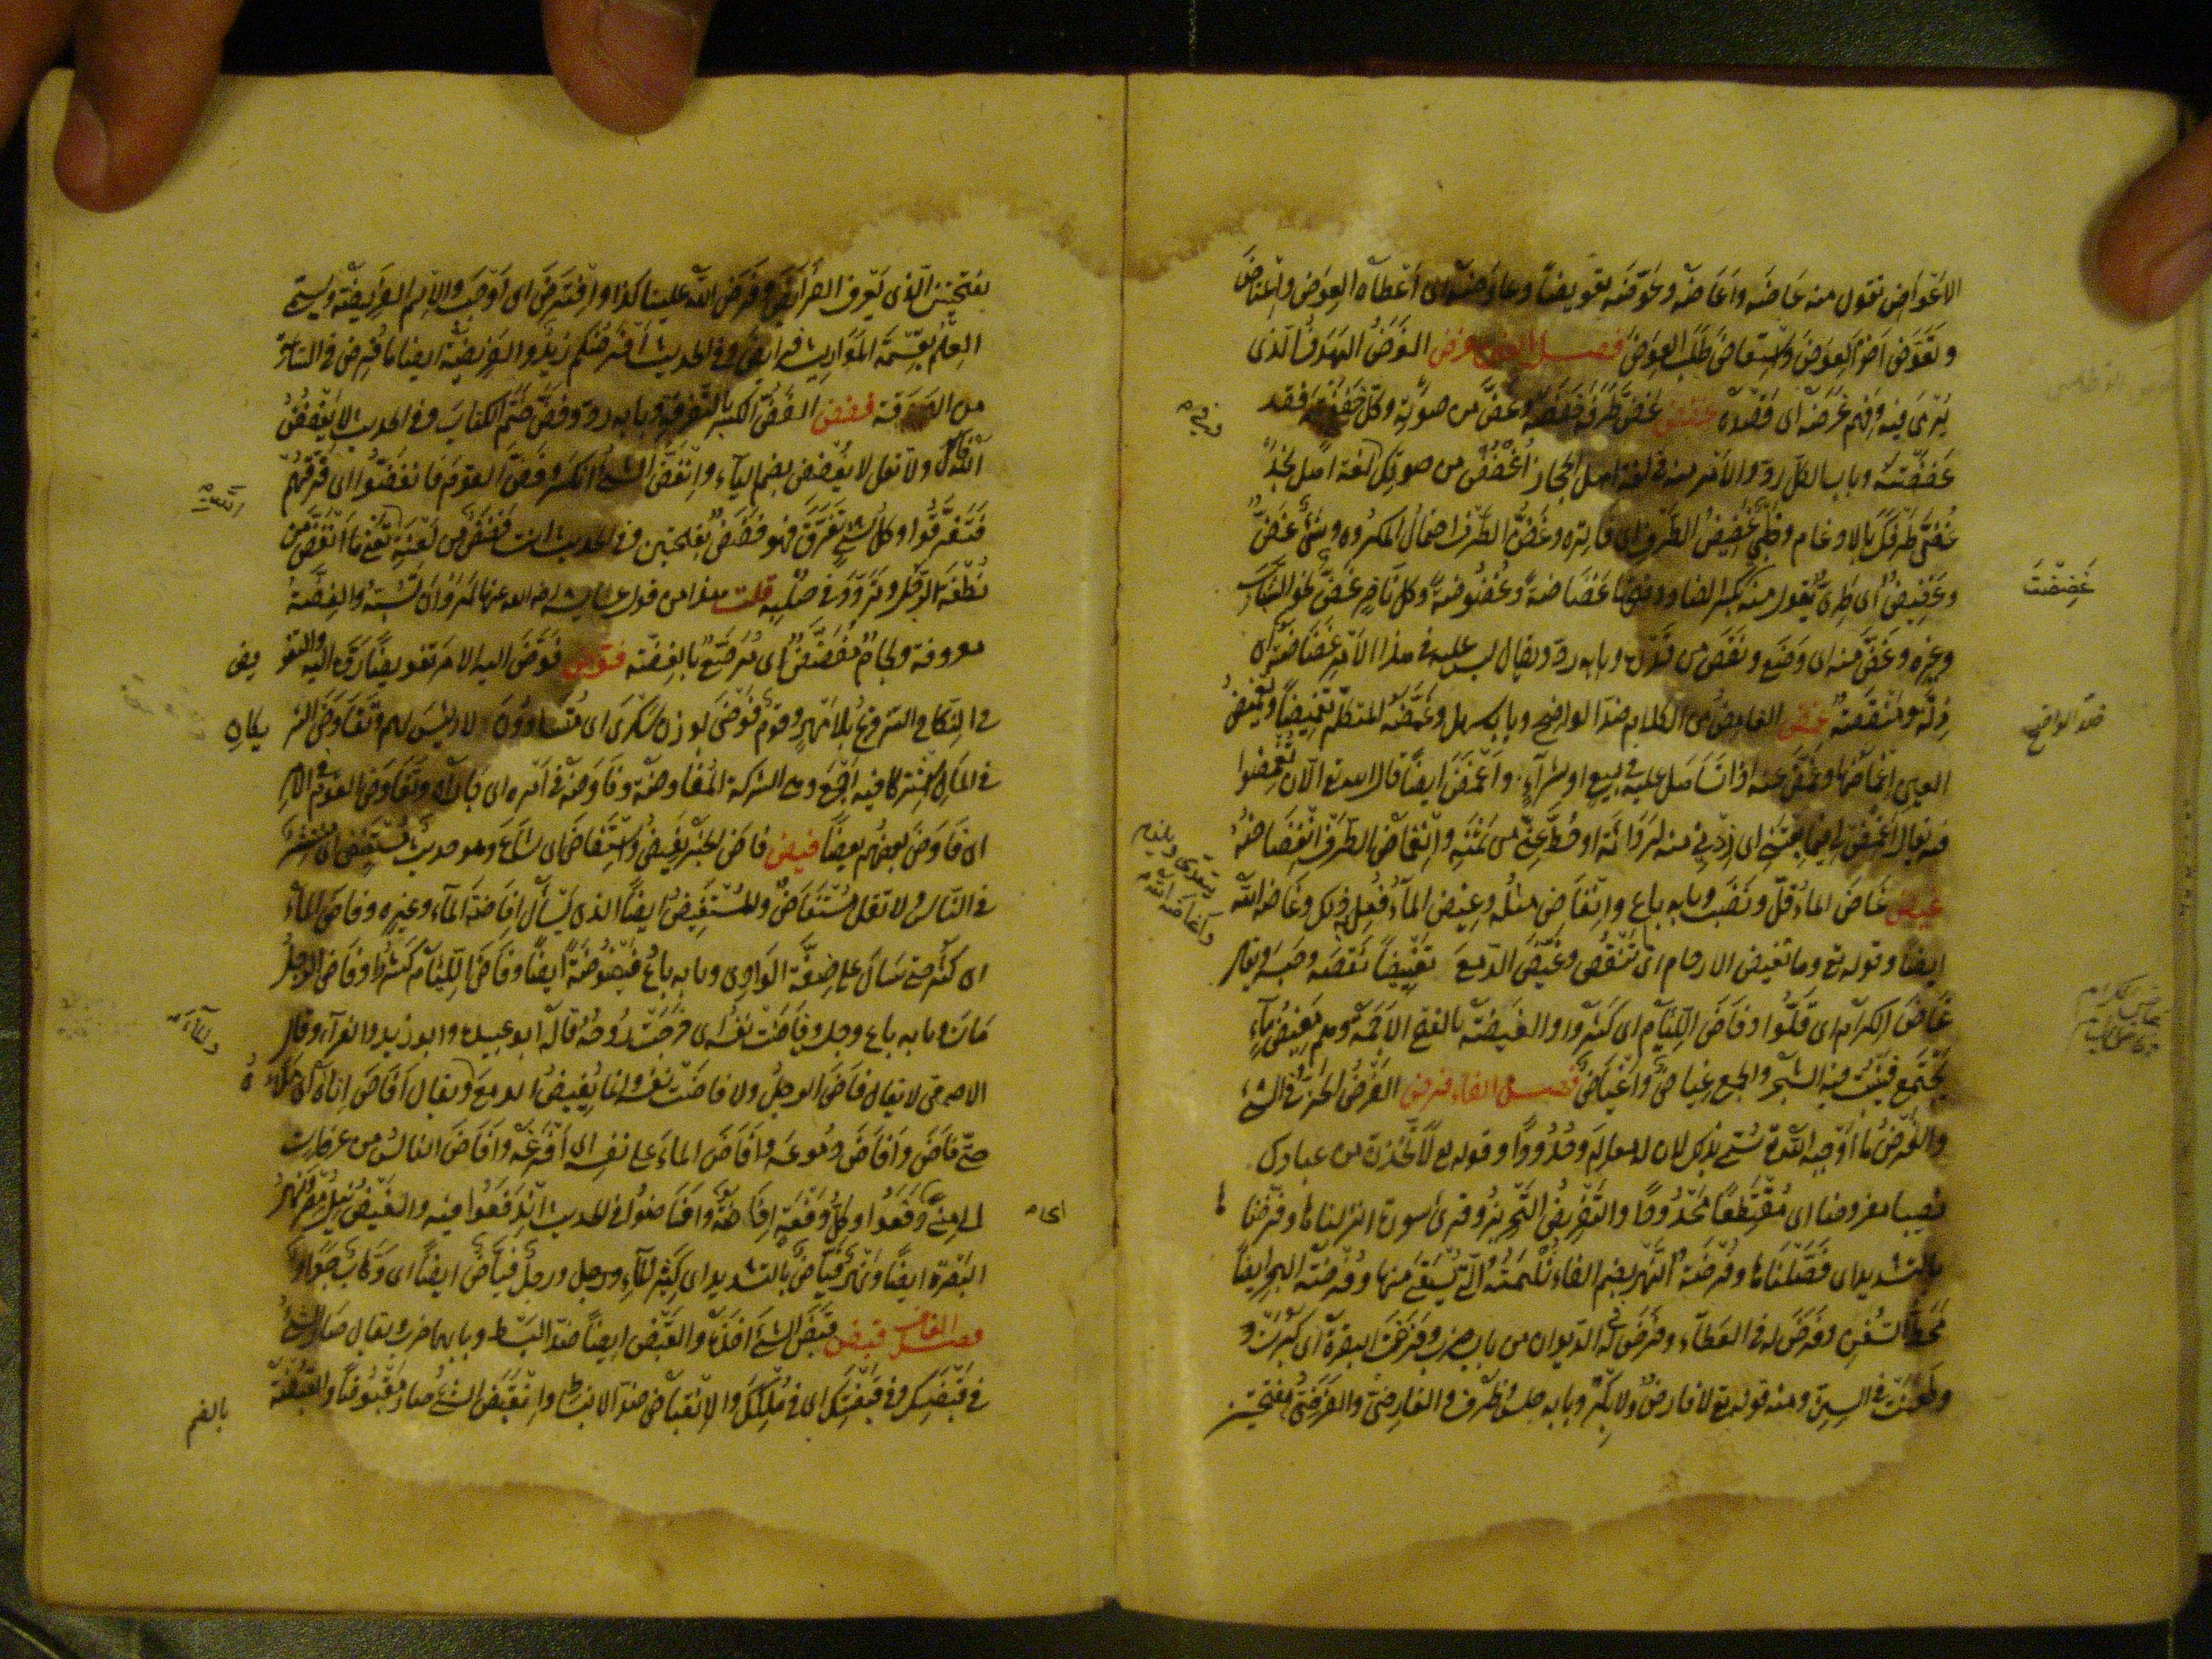 الاعْوَاض تقول منه عَاضَه وَاَعَاضَه وعَوَّضَه تعويضًا وعاوضه اى اَعْطَاه العِوَض واعْتَاضَ
وتَعَوَّض اخذ العِوَض وَاسْتعاض طَلَبَ العِوَض فصل الغين غرض الغَرَضُ الهَدَفُ الّذى
يُرْمَى فيه وفَهِم غَرَضَه اى قَصْدَه غضض غَضَّ طَرْفَه خَفَضَه وغَضَّ من صوته وكلّ شئ كففته فقد
غَضَضْتَه وباب الكلّ ردّ والأمر منه فى لغة اهل الحجاز اُغْضُضْ من صوتك ولغة اهل نجد
غُضَّ طَرْفَكَ بالادغام وظَبْىٌ غَضِيضُ الطَّرْفِ اى فاتِرُه وغَضُّ الطَّرْف احتمالُ المكروه وشئٌ غَضٌّ
وغَضِيضٌ اى طَرِىٌّ تقول منه بكسر الضاد وفتحها غَضَاضةً وغُضُوضةً وكلّ نَاضِرٍ غَضٌّ نحو الشاب
وغيره وغَضَّ منه اى وَضَعَ ونَقَصَ من قَدْرِه وبابه ردّ ويقال ليس عليه فى هذا الأمر غَضَاضَةٌ اى
ذِلّةٌ ومَنْقَصَةٌ غمض الغامِضُ من الكلام ضدّ الواضح وبابه سهل وغَمَّضَه المتكلّم تغميضًا وتغميضُ
العين اِغماضُها وغَمَّضَ عنه اذا تَسَاهَل عليه فى بيعٍ او شِرَآءٍ وَاَغْمَضَ ايضًا قال الله تع الّا ان تُغْمِضوا
فيه يقال اَغْمِضْ لى فيما بِعْتَنِى اى زِدْنِى منه لِرَدَائَتِه او حُطَّ عنّى من ثَمَنِه وانْغِمَاضُ الطَّرْف انْغِضَاضُهُ
غيض غَاضَ الماءُ قلّ ونَضَبَ وبابه باع وانْغَاضَ مثلُه وغِيضَ الماءُ فُعِل به ذلك وغَاضَه اللّه
ايضًا وقوله تع وما تغيض الارحام اى تَنْقُص وغَيَّضَ الدّمعَ تَغْيِيضًا نَقَصَه وحَبَسَه ويقال
غَاضَ الكِرَامُ اى قَلُّوا وفَاضَ اللِّئَامُ اى كَثُروا والغَيْضَة بالفتح الاَجَمَة وهى مَغِيضُ ماءٍ
يَجْتَمِع فيَنْبُت فيه الشجر والجمع غِيَاضٌ وَاَغْيَاضٌ فصل الفاء فرض الفَرْضُ الحَزّ فى الشئ
والفَرْضُ ما اَوْجَبه اللّه تع سُمّى بذلك لان له معالِمَ وحُدُودًا وقوله تع لَاَتَّخِذَنَّ من عبادك
نصيبا مفروضا اى مُقْتَطَعًا مَحْدُودًا والتَّفْرِيض التَّحْزِيز وقرئ سورة انزلناها وفرّضنا ها
بالتشديد اى فَصَّلْنَاها وفُرْضَةُ النَّهْر بضم الفاء ثُلْمَتُه الّتى يُسْتَقَى منها وفُرْضَة البحر ايضًا
مَحَطُّ السُّفُن وفَرَضَ له فى العَطَاء وفَرَضَ له فى الدّيوان من باب ضرب وفَرَضَتِ البقرةُ اى كَبِرَتْ و
وطَعَنَتْ فى السِنّ ومنه قوله تع لا فارض ولا بِكْرٌ وبابه جلس وظرف والفارِضُ والفَرَضِىُّ بفتحتين
غَضِضْتَ
ضدّ الواضح
بفتحتين الّذى يَعْرِف الفَرَآئِضَ وفَرَضَ اللّه علينا كذا وافْتَرَضَ اى اَوْجَبَ والاسم الفَرِيضَة ويسمّى
العِلْمُ بقِسْمَة المَوَارِيث فرائِضَ وفى الحديث اَفْرَضُكم زيدٌ والفَرِيضَة ايضا ما فُرِض فى السّائمة
من الصَّدَقَة فضض الفَضُّ الكَسْر بالتَّفْرِقَة وبابه ردّ وفَضَّ خَتْمَ الكتاب وفى الحديث لا يَفْضُضِ
اللّه فاك ولا تقل لا يُفْضِض بضم اليآء وانْفَضَّ الشئ انكسر وفَضَّ القومَ فانفَضُّوا اى فَرَّقَهُمْ
فتَفَرَّقُوا وكلّ شئٍ تَفَرَّقَ فهو فَضَضٌ بفتحتين وفى الحديث انت فَضَضٌ من لَعْنَةِ اللّه يعنى ما انْفَضَّ من
نُطْفَة الرّجُل وتَرَدَّدَ فى صُلْبِه قلت هذا من قول عائشة رضى الله عنها لمَرْوَان والفِضَّة
معروفة ولِجامٌ مُفَضَّضٌ اى مُرَصَّعٌ بالفِضَّة فوض فَوَّضَ اليه الامر تفويضًا رَدَّه اليه والتفو يض
فى النِكاح التزويجُ بلا مَهْرٍ وقومٌ فَوْضَى بوزن سَكْرَى اى مُتَساوُون لا رئيسَ لهم وتَفَاوَضَ الشر يكان
فى المال اشتركا فيه اَجْمَعَ وهى الشركة المُفاوضَة وفَاوَضَه فى اَمْره اى جَارَاه وتَفَاوَضَ القوم فى الامر
اى فَاوَضَ بعضُهم بعضًا فيض فاضَ الخبرُ يَفِيضُ واسْتَفَاضَ اى شَاعَ وهو حديث مُسْتَفِيضٌ اى مُنْتَشِرٌ
فى النّاس ولا تقل مُسْتَفَاضٌ والمُسْتَفِيضُ ايضًا الذى يَسْأل اِفَاضَةَ المآء وغيره وفاضَ الماءُ
اى كثُر حتى سَالَ على ضِفَّة الوَادِى وبابه باع وفَيْضُوضَةً ايضًا وفَاضَ اللِّئَامُ كَثُروا وفَاضَ الرجلُ
مَاتَ وبابه باع وجلس وفَاضَتْ نَفْسُه اى خَرَجَتْ رُوحُهُ قاله ابو عبيدة وابو زيد والفرآء وقال
الاصمعى لا يقال فاضَ الرجلُ ولا فاضَتْ نفسُه وانما يَفِيضُ الدمعَ ويقال اَفَاضَ اِنَاءَه اى مَلَأ هُ
حتّى فَاضَ وَاَفَاضَ دُمُوعَه وَاَفَاضَ الماءَ على نفسِه اى اَفْرَغَه وَاَفَاضَ الناسُ من عرفات
الى مِنًى دَفَعُوا وكلّ دَفْعَةٍ اِفَاضَةٌ وَاَفَاضُوا فى الحديث انْدَفَعُوا فيه والفَيْضُ نِيلُ مِصْر ونَهْرُ
البَصْرَة ايضًا ونَهْرٌ فَيَّاضٌ بالتشديد اى كَثِيرُ المآءِ ورجلٌ فَيَّاضٌ ايضًا اى وَهَّابٌ جَوَادٌ
فصل القاف قبض قَبَضَ الشئ اَخَذَه والقَبْض ايضًا ضدّ البَسْط وبابهما ضرب ويقال صار الشئ
فى قَبْضِك وفى قَبْضَتِك اى فى مُلْكِكَ والانْقِبَاض ضدّ الانبساط وانْقَبَض الشئ صار مَقْبُوضًا والقُبْضَة
بالضم